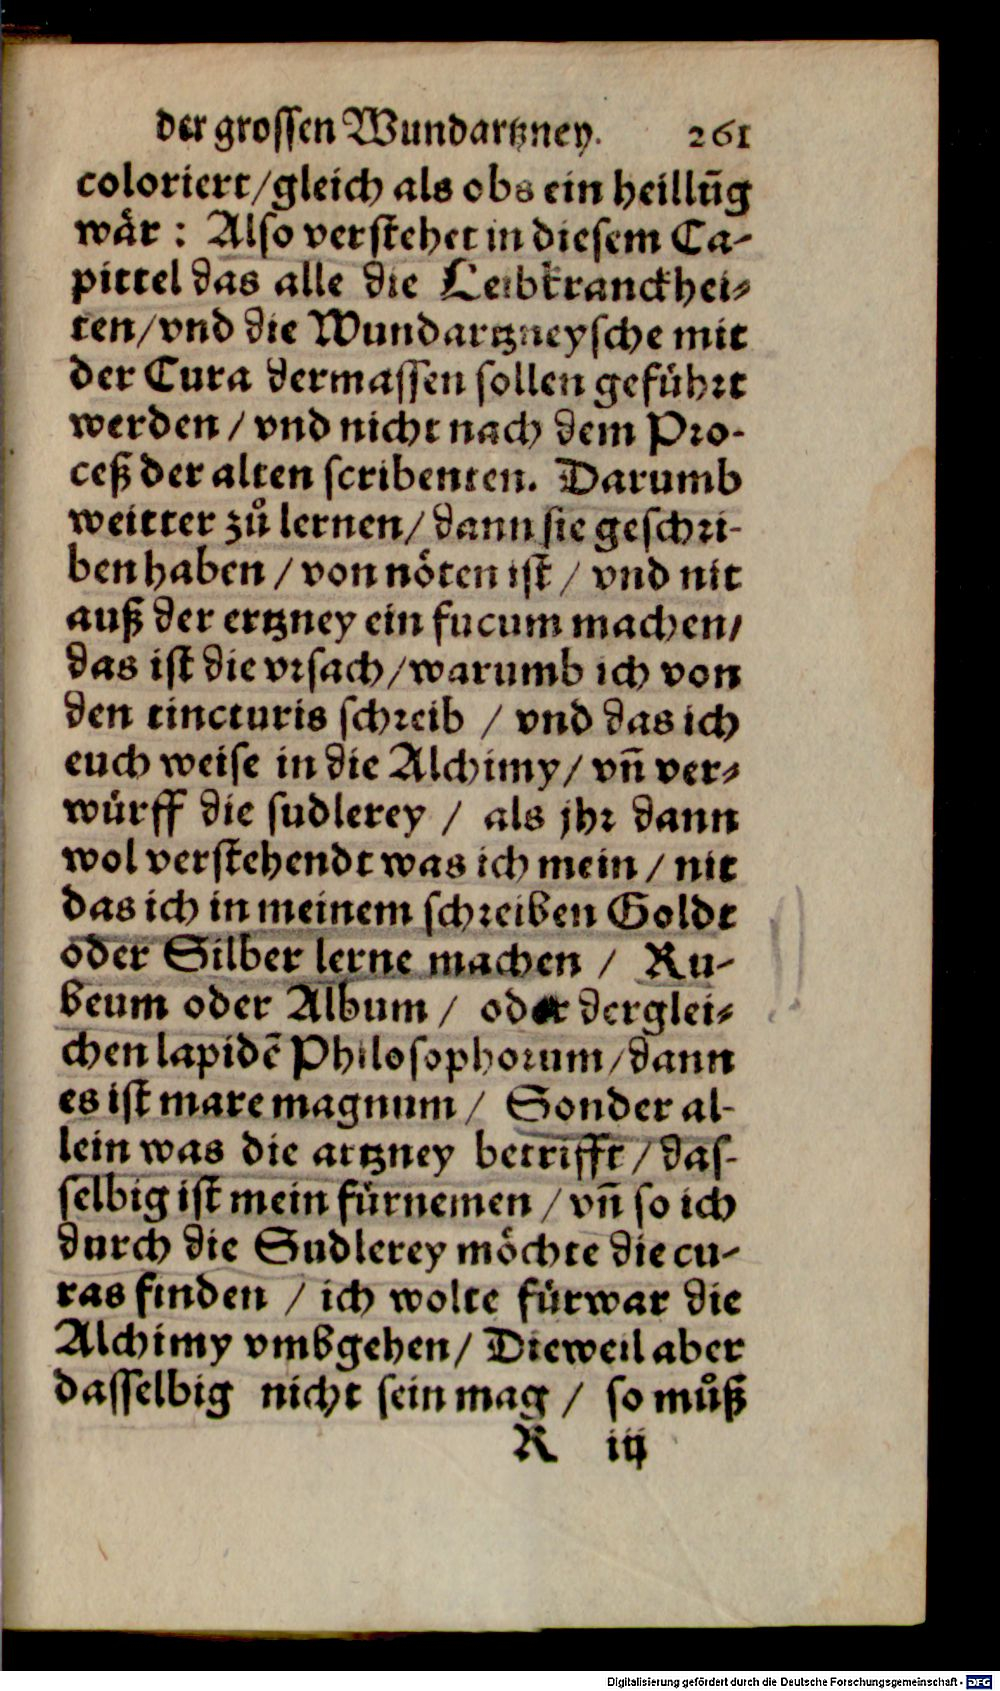 der grossen Wundartzney. 261
coloriert/gleich als obs ein heillūg
wår : Also verstehet in diesem Ca-
pittel das alle die Leibkranckhei-
ten/vnd die Wundartzneysche mit
der Cura dermassen sollen geführt
werden / vnd nicht nach dem Pro-
ceß der alten scribenten. Darumb
weitter zů lernen/ dann sie geschri-
ben haben / von nöten ist / vnd nit
auß der ertzney ein fucum machen/
das ist die vrsach/warumb ich von
den tincturis schreib / vnd das ich
euch weise in die Alchimy/ vn̄ ver-
würff die sudlerey / als jhr dann
wol verstehendt was ich mein / nit
das ich in meinem schreiben Goldt
oder Silber lerne machen / Ru-
beum oder Album / oder derglei-
chen lapidē Philosophorum/dann
es ist mare magnum / Sonder al-
lein was die artzney betrifft / das-
selbig ist mein fürnemen / vn̄ so ich
durch die Sudlerey möchte die cu-
ras finden / ich wolte fürwar die
Alchimy vmbgehen/ Dieweil aber
dasselbig nicht sein mag / so můß
R iij
Digitalisierung gefördert durch die Deutsche Forschungsgemeinschaft - DFG